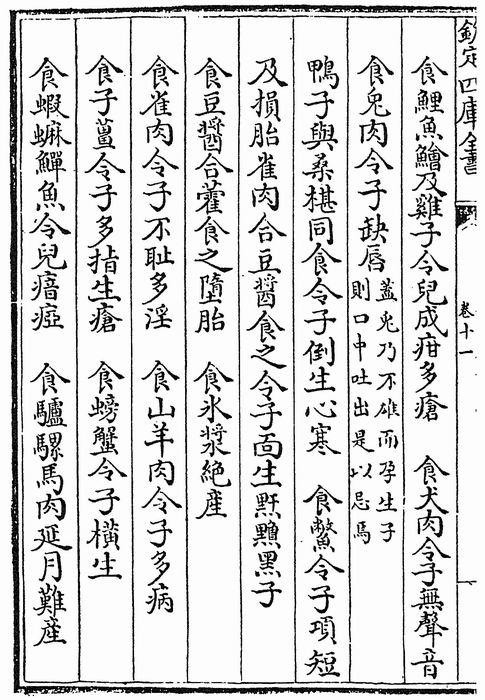 欽定四庫全書
卷十一
食鯉魚鱠及雞子令兒成疳多瘡　食犬肉令子無聲音
食兔肉令子缺唇蓋兔乃不雄而孕生子
則口中吐出是以忌焉
鴨子與桑椹同食令子倒生心寒　食鱉令子項短
及損胎雀肉合豆醬食之令子面生䵟黵黑子
食豆醬合藿食之墮胎　食氷漿絶産
食雀肉令子不耻多淫　食山羊肉令子多病
食子薑令子多指生瘡　食螃蟹令子橫生
食蝦蟆鱓魚令兒瘖瘂　食驢騾馬肉延月難産